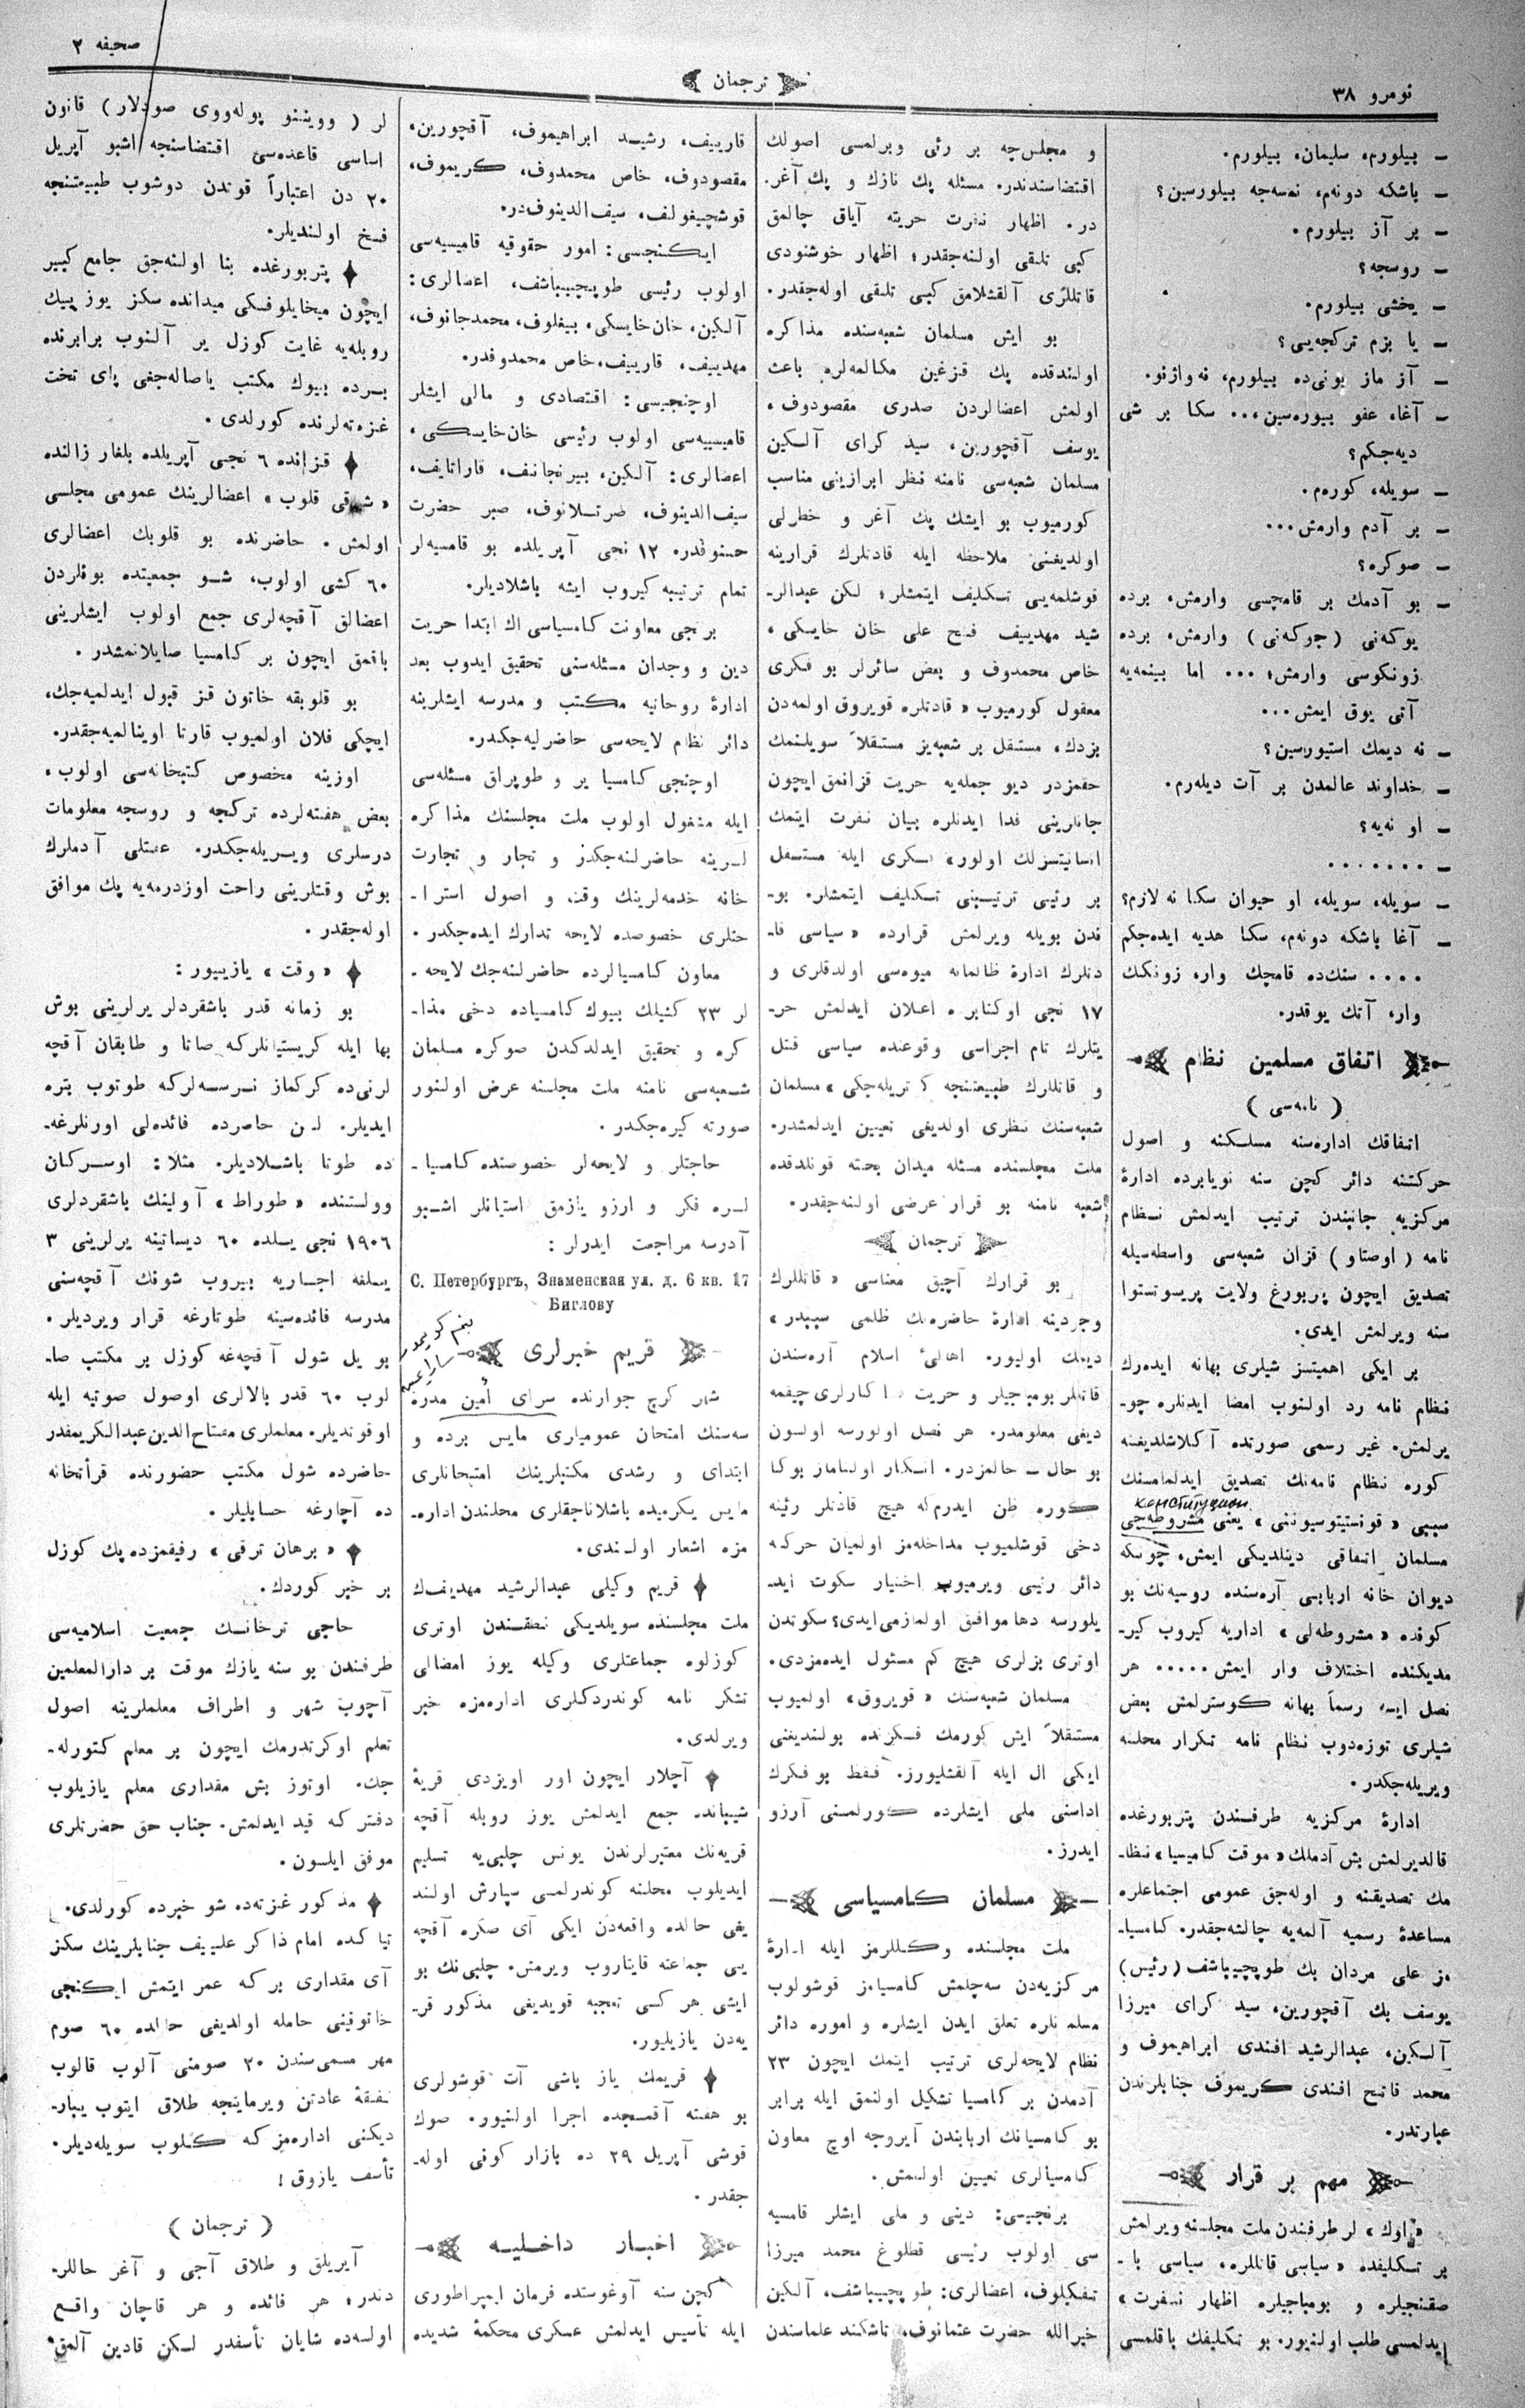 نومرو ٣٨
ترجمان
صحیفه ٢
— بیلورم، سلیمان، بیلورم.
— باشكه دونه‌م، نمسه‌جه بیلورسین؟
— بر آز بیلورم.
— روسجه؟
— یخشی بیلورم.
— یا بزم تركجه‌یی؟
— آز ماز بونی‌ده بیلورم، نه‌واژنو.
— آغا، عفو بیوره‌سین... سكا بر شی
دیه‌جكم؟
— سویله، كوره‌م.
— بر آدم وارمش...
— صوكره؟
— بو آدمك بر قامچسی وارمش، برده
یوكه‌نی (جوكه‌نی) وارمش، برده
زونكوسی وارمش؛ ... اما بینمه‌یه
آتی یوق ایمش...
— نه دیمك استیورسین؟
— خداوند عالمدن بر آت دیله‌رم.
— او نه‌یه؟
— .......
— سویله، سویله، او حیوان سكا نه لازم؟
— آغا باشكه دونه‌م، سكا هدیه ایده‌جكم
.... سنك‌ده قامچك وار، زونكك
وار، آتك یوقدر.
اتفاق مسلمین نظام
( نامه‌سی )
اتفاقك اداره‌سنه مسلكنه و اصول
حركتنه دائر كچن سنه نویابرده ادارۀ
مركزیه جانبندن ترتیب ایدلمش نظام
نامه (اوصتاو) قزان شعبه‌سی واسطه‌سیله
تصدیق ایچون پربورغ ولایت پریسوتستوا
سنه ویرلمش ایدی.
بر ایكی اهمیتسز شیلری بهانه ایده‌رك
نظام نامه رد اولنوب امضا ایدنلره چو-
یرلمش. غیر رسمی صورتده آكلاشلدیغنه
كوره نظام نامه‌نك تصدیق ایدلمامسنك
конституцион
سببی « قونستیتوسیوننی » یعنی مشروطه‌جی
مسلمان اتفاقی دینلدیكی ایمش، چونكه
دیوان خانه اربابی آره‌سنده روسیه‌نك بو
كونده « مشروطه‌لی » اداریه كیروب كیر-
مدیكنده اختلاف وار ایمش..... هر
نصل ایسه رسماً بهانه كوسترلمش بعض
شیلری توزه‌دوب نظام نامه تكرار محلنه
ویریله‌جكدر.
ادارۀ مركزیه طرفندن پتربورغده
قالدیرلمش بش آدملك « موقت كامیسیا » نظا-
مك تصدیقنه و اوله‌جق عمومی اجتماعلره
مساعدۀ رسمیه آلمه‌یه چالشه‌جقدر. كامسیا-
مز علی مردان بك طوپچیباشف (رئیس)
یوسف بك آقچورین، سید كرای میرزا
آلكین، عبدالرشید افندی ابراهیموف و
محمد فاتح افندی كریموف جنابلرندن
عبارتدر.
مهم بر قرار
« اوك » لر طرفندن ملت مجلسنه ویرلمش
بر تكلیفده « سیاسی قاتللره، سیاسی با-
صقنجیلره و بومباجیلره اظهار نفرت »
ایدلمسی طلب اولنیور. بو تكلیفك باقلمسی
و مجلس‌چه بر رئی ویرلمسی اصولك
اقتضاسندندر. مسئله پك نازك و پك آغر-
در. اظهار نفرت حریته آیاق چالمق
كبی تلقی اولنه‌جقدر؛ اظهار خوشنودی
قاتللری آلقشلامق كبی تلقی اوله‌جقدر.
بو ایش مسلمان شعبه‌سنده مذاكره
اولندقده پك قزغین مكالمه‌لره باعث
اولمش اعضالردن صدری مقصودوف،
یوسف آقچورین، سید كرای آلكین
مسلمان شعبه‌سی نامنه نظر ابرازینی مناسب
كورمیوب بو ایشك پك آغر و خطرلی
اولدیغنی ملاحظه ایله قادتلرك قرارینه
قوشلمه‌یی تكلیف ایتمشلر؛ لكن عبدالر-
شید مهدییف فتح علی خان خایسكی،
خاص محمدوف و بعض سائرلر بو فكری
معقول كورمیوب « قادتلره قویروق اولمه‌دن
بزدك، مستقل بر شعبه‌یز مستقلاً سویلنمك
حقمزدر دیو جمله‌یه حریت قزانمق ایچون
جانلرینی فدا ایدنلره بیان نفرت ایتمك
انسانیتسزلك اولور » فكری ایله مستقل
بر رئیی ترتیبینی تكلیف ایتمشلر. بو-
ندن بویله ویرلمش قرارده « سیاسی قا-
تللرك ادارۀ ظالمانه میوه‌سی اولدقلری و
١٧ نجی اوكتابره اعلان ایدلمش حر-
یتلرك تام اجراسی وقوعنده سیاسی قتل
و قاتللرك طبیعتنجه كتریله‌جكی » مسلمان
شعبه‌سنك نظری اولدیغی تعیین ایدلمشدر.
ملت مجلسنده مسئله میدان بحثه قونلدقده
شعبه نامنه بو قرار عرض اولنه‌جقدر.
ترجمان
بو قرارك آچیق معناسی « قاتللرك
وجودینه ادارۀ حاضره‌نك ظلمی سببدر »
دیمك اولیور. اهالئ اسلام آره‌سندن
قاتللر بومباجیلر و حریت داكارلری چیقمه
دیغی معلومدر. هر نصل اولورسه اولسون
بو حال — حالمزدر. انكار اولنماز بوكا
كوره ظن ایدرم‌كه هیچ قادتلر رئینه
دخی قوشلمیوب مداخله‌مز اولمیان حركه
دائر رئیی ویرمیوب اختیار سكوت اید-
یلورسه دها موافق اولمازمی‌ایدی؟ سكوتدن
اوتری بزلری هیچ كم مسئول ایده‌مزدی.
مسلمان شعبه‌سنك « قویروق » اولمیوب
مستقلاً ایش كورمك فكرنده بولندیغنی
ایكی ال ایله آلقشلیورز. فقط بو فكرك
اداسنی ملی ایشلرده كورلمسنی آرزو
ایدرز.
مسلمان كامسیاسی
ملت مجلسنده وكیللرمز ایله ادارۀ
مركزیه‌دن سه‌چلمش كامسیامز قوشولوب
مسلمانلره تعلق ایدن ایشلره و اموره دائر
نظام لایحه‌لری ترتیب ایتمك ایچون ٢٣
آدمدن بر كامسیا تشكیل اولنمق ایله برابر
بو كامسیانك اربابندن آیروجه اوچ معاون
كامسیالری تعیین اولنمش.
برنجیسی: دینی و ملی ایشلر قامسیه
سی اولوب رئیسی قطلوغ محمد میرزا
تنفكیلوف، اعضالری: طوپچیباشف، آلكین
خیرالله حضرت عثمانوف، تاشكند علماسندن
قارییف، رشید ابراهیموف، آقچورین،
مقصودوف، خاص محمدوف، كریموف،
قوشچیغولف، سیف‌الدینوف‌در.
ایكنجیسی: امور حقوقیه قامیسیه‌سی
اولوب رئیسی طوپچیباشف، اعضالری:
آلكین، خان‌خایسكی، بیغلوف، محمدجانوف،
مهدییف، قارییف، خاص محمدوفدر.
اوچنجیسی: اقتصادی و مالی ایشلر
قامیسیه‌سی اولوب رئیسی خان‌خایسكی،
اعضالری: آلكین، بیرنجانف، قاراتایف،
سیف‌الدینوف، ضرتسلانوف، صبر حضرت
حسنوفدر. ١٢ نجی آپریلده بو قامسیه‌لر
تمام ترتیبه كیروب ایشه باشلادیلر.
برنجی معاونت كامسیاسی اك ابتدا حریت
دین و وجدان مسئله‌سنی تحقیق ایدوب بعد
ادارۀ روحانیه مكتب و مدرسه ایشلرینه
دائر نظام لایحه‌سی حاضرلیه‌جكدر.
اوچنجی كامسیا یر و طوپراق مسئله‌سی
ایله مشغول اولوب ملت مجلسنك مذاكره
لرینه حاضرلنه‌جكدر و تجار و تجارت
خانه خدمه‌لرینك وقت و اصول استرا-
حتلری خصوصده لایحه تدارك ایده‌جكدر.
معاون كامسیالرده حاضرلنه‌جك لایحه-
لر ٢٣ كشیلك بیوك كامسیاده دخی مذا-
كره و تحقیق ایدلدكدن صوكره مسلمان
شعبه‌سی نامنه ملت مجلسنه عرض اولنور
صورته كیره‌جكدر.
حاجتلر و لایحه‌لر خصوصنده كامسیا-
لره فكر و ارزو یازمق استیانلر اشبو
آدرسه مراجعت ایدرلر:
С. Петербургъ, Знаменская ул. д. 6 кв. 17
Биглову
قریم خبرلری
شهر كرچ جوارنده سرای أمین مدره
سه‌سنك امتحان عمومیاری مایس برده و
ابتدای و رشدی مكتبلرینك امتحانلری
مایس یكرمیده باشلاناجقلری محلندن اداره-
مزه اشعار اولندی.
قریم وكیلی عبدالرشید مهدیف‌ك
ملت مجلسنده سویلدیكی نطقندن اوتری
كوزلوه جماعتلری وكیله یوز امضالی
تشكر نامه كوندردكلری اداره‌مزه خبر
ویرلدی.
آچلار ایچون اور اویزدی قریۀ
شیباندە جمع ایدلمش یوز روبله آقچه
قریه‌نك معتبرلرندن یونس چلبی‌یه تسلیم
ایدیلوب محلنه كوندرلمسی سپارش اولند
یغی حالده واقعه‌دن ایكی آی صكره آقچه
یی جماعته قایتاروب ویرمش. چلبی‌نك بو
ایشی هر كسی تعجبه قویدیغی مذكور قر-
یه‌دن یازیلیور.
قریمك یاز باشی آت قوشولری
بو هفته آقمسجده اجرا اولنیور. صوك
قوشی آپریل ٢٩ ده بازار كونی اوله-
جقدر.
اخبار داخلیه
كچن سنه آوغوستده فرمان ایمپراطوری
ایله تأسیس ایدلمش عسكری محكمۀ شدیده
لر ( ووینننو پوله‌ووی صودلار ) قانون
اساسی قاعده‌سی اقتضاسنجه اشبو آپریل
٢٠ دن اعتباراً قوتدن دوشوب طبیعتنجه
فسخ اولندیلر.
پتربورغده بنا اولنه‌جق جامع كبیر
ایچون میخایلوفسكی میدانده سكز یوز بیك
روبله‌یه غایت كوزل یر آلنوب برابرنده
برده بیوك مكتب یاصاله‌جغی پای تخت
غزته‌لرنده كورلدی.
قزانده ٦ نجی آپریلده بلغار زالنده
« شرقی قلوب » اعضالرینك عمومی مجلسی
اولمش. حاضرنده بو قلوبك اعضالری
٦٠ كشی اولوب، شو جمعیتده بونلردن
اعضالق آقچه‌لری جمع اولوب ایشلرینی
باقمق ایچون بر كامسیا صایلانمشدر.
بو قلوبقه خاتون قز قبول ایدلمیه‌جك،
ایچكی فلان اولمیوب قارتا اوینالمیه‌جقدر.
اوزینه مخصوص كتبخانه‌سی اولوب،
بعض هفته‌لرده تركجه و روسجه معلومات
درسلری ویریله‌جكدر. عقللی آدملرك
بوش وقتلرینی راحت اوزدرمه‌یه پك موافق
اوله‌جقدر.
« وقت » یازییور:
بو زمانه قدر باشقردلر یرلرینی بوش
بها ایله كریستیانلركه صاتا و طابقان آقچه
لرنی‌ده كركماز نرسه‌لركه طوتوب بتره
ایدیلر. لكن حاضرده فائده‌لی اورنلرغه-
ده طوتا باشلادیلر. مثلا: اوسركان
وولستنده « طوراط » آولینك باشقردلری
١٩٠٦ نجی یلده ٦٠ دیساتینه یرلرینی ٣
یللغه اجاریه بیروب شونك آقچه‌سنی
مدرسه فائده‌سینه طوتارغه قرار ویردیلر.
بو یل شول آقچه‌غه كوزل بر مكتب صا-
لوب ٦٠ قدر بالالری اوصول صوتیه ایله
اوقوتدیلر. معلملری مفتاح‌الدین عبدالكریمفدر
حاضرده شول مكتب حضورنده قرأتخانه
ده آچارغه حسابلیلر.
« برهان ترقی » رفیقمزده پك كوزل
بر خبر كوردك.
حاجی ترخانك جمعیت اسلامیه‌سی
طرفندن بو سنه یازك موقت بر دارالمعلمین
آچوب شهر و اطراف معلملرینه اصول
تعلم اوكرتدرمك ایچون بر معلم كتورله-
جك. اوتوز بش مقداری معلم یازیلوب
دفتركه قید ایدلمش. جناب حق حضرتلری
موفق ایلسون.
مذكور غزته‌ده شو خبرده كورلدی.
تیاكده امام ذاكر علییف جنابلرینك سكز
آی مقداری بركه عمر ایتمش ایكنجی
خاتونینی حامله اولدیغی حالده ٦٠ صوم
مهر مسمی‌سندن ٢٠ صومنی آلوب قالوب
نفقۀ عادتن ویرماینجه طلاق ایتوب یبار-
دیكنی اداره‌مزكه كلوب سویله‌دیلر.
تأسف یازوق!
( ترجمان )
آیریلق و طلاق آجی و آغر حاللر-
دندر، هر قائده و هر قاچان واقع
اولسه‌ده شایان تأسفدر لكن قادین آلمق